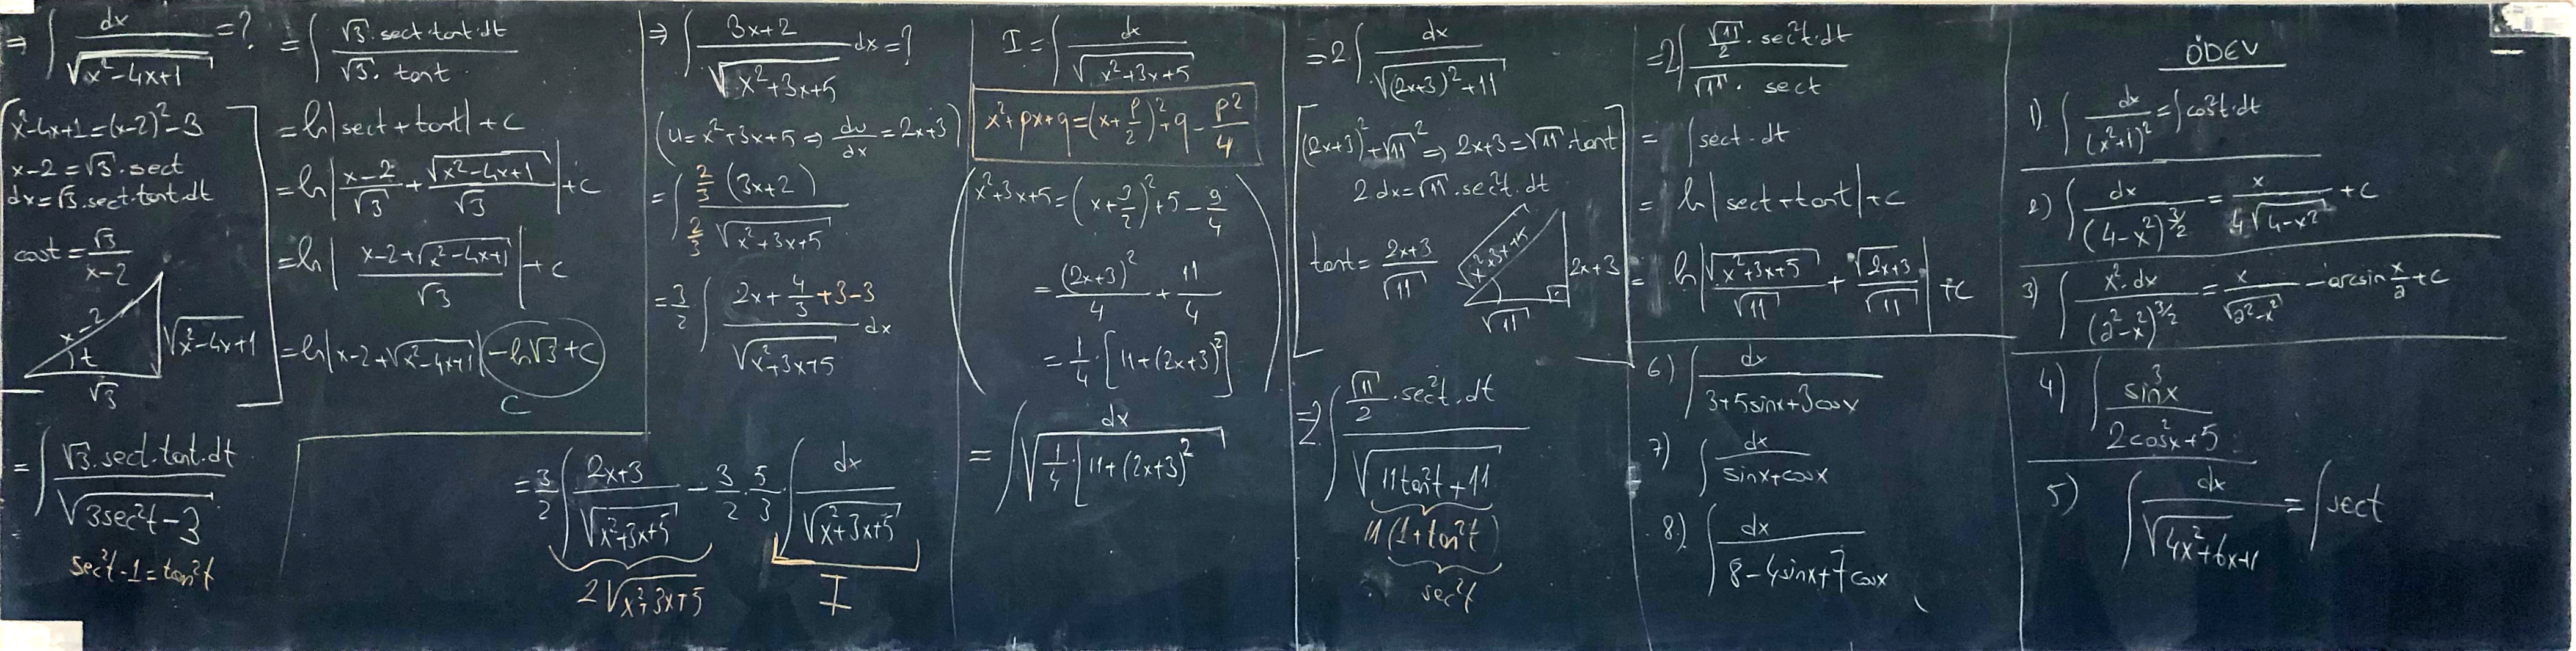 ⇒ ∫ dx / √(x²-4x+1) = ?
x²-4x+1 = (x-2)²-3
x-2 = √3 . sect
dx = √3 . sect . tant . dt
cost = √3 / (x-2)
x-2
t
√(x²-4x+1)
√3
= ∫ √3 . sect . tant . dt / √(3sec²t - 3)
sec²t - 1 = tan²t
= ∫ √3 . sect . tant . dt / √3 . tant
= ln|sect + tant| + c
= ln| (x-2)/√3 + √(x²-4x+1)/√3 | + c
= ln| (x-2+√(x²-4x+1))/√3 | + c
= ln|x-2+√(x²-4x+1)| -ln√3 + c
C
⇒ ∫ (3x+2) / √(x²+3x+5) dx = ?
(u = x²+3x+5 ⇒ du/dx = 2x+3)
= ∫ 2/3 (3x+2) / 2/3 √(x²+3x+5)
= 3/2 ∫ (2x + 4/3 + 3 - 3) / √(x²+3x+5) dx
= 3/2 ∫ (2x+3) / √(x²+3x+5) - 3/2 . 5/3 . ∫ dx / √(x²+3x+5)
2√(x²+3x+5)
I
I = ∫ dx / √(x²+3x+5)
x²+px+q = (x+p/2)² + q - p²/4
x²+3x+5 = (x+3/2)² + 5 - 9/4
= (2x+3)²/4 + 11/4
= 1/4 . [11+(2x+3)²]
= ∫ dx / √(1/4 . [11+(2x+3)²
= 2 ∫ dx / √((2x+3)²+11)
(2x+3)² + √11² ⇒ 2x+3 = √11 . tant
2dx = √11 . sec²t . dt
tant = (2x+3)/√11
2x+3
√11
= 2 ∫ √11/2 . sec²t . dt / √(11tan²t + 11)
11(1+tan²t)
sec²t
= 2 ∫ √11/2 . sec²t . dt / √11 . sect
= ∫ sect . dt
= ln|sect + tant| + c
= ln| √(x²+3x+5)/√11 + √(2x+3)/√11 | + c
6) ∫ dx / (3+5sinx+3cosx)
7) ∫ dx / (sinx+cosx)
8) ∫ dx / (8-4sinx+7cosx)
ÖDEV
1) ∫ dx / (x²+1)² = ∫ cos²t . dt
2) ∫ dx / (4-x²)^3/2 = x / 4√(4-x²) + c
3) ∫ x² . dx / (a²-x²)^3/2 = x / √(a²-x²) - arcsin x/a + c
4) ∫ sin³x / (2cos²x+5)
5) ∫ dx / √(4x²+6x+11) = ∫ sect